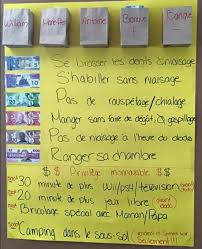 William
Antoine
Banque
+
Banque
-
Se brosser les dents s/niaisage
S'habiller sans niaisage
Pas de rouspétage/chialage
Manger sans faire de dégât, s/gaspillage
Pas de niaisage à l'heure du dodo
Ranger sa chambre
$ $ Privilège monnayable $ $
30 minute de plus Wii/psy/télévision avant dodo
20 minute de plus jeux libre avant dodo
Bricolage spécial avec Maman/Papa
Camping dans le sous-sol
Seulement!!!